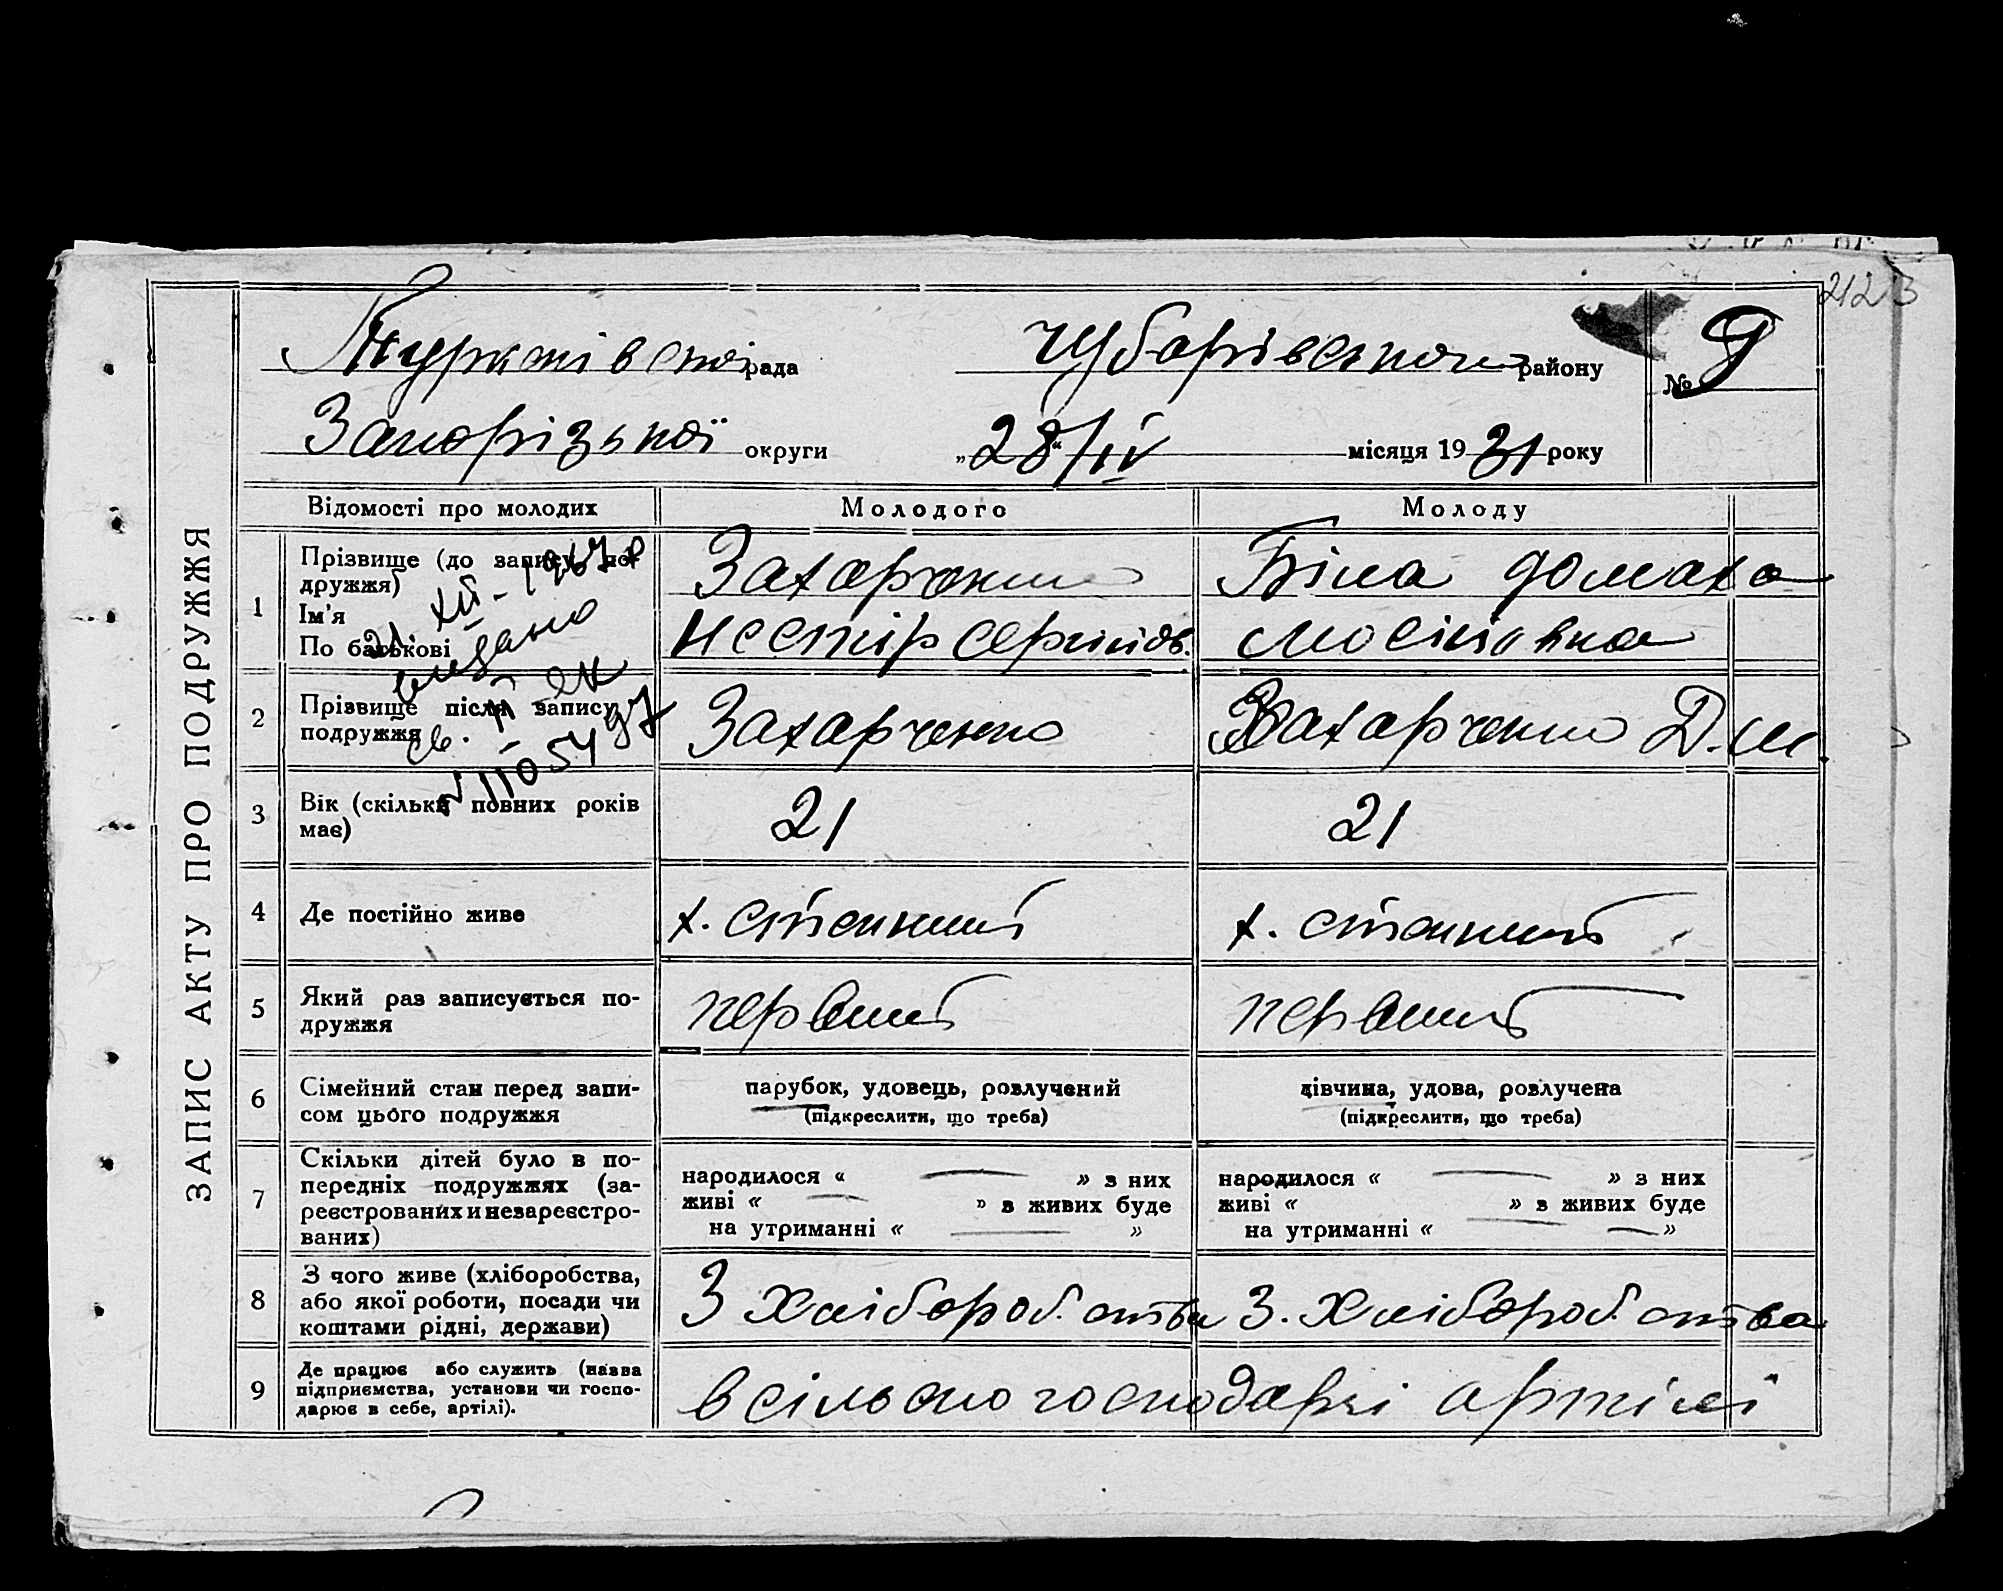 2123
рада Чубарівського району № 9
Запорізької округи „28“/IV місяця 1931 року
ЗАПИС АКТУ ПРО ПОДРУЖЖЯ
Відомості про молодих Молодого Молоду
1 Прізвище (до запису подружжя)
Ім'я
По батькові
Захарченко
Нестір Сергійов.
Біла Домаха
Мосіївна
21. XII - 1967 р
видано
св. II
2 Прізвище після запису
подружжя
Захарченко Захарченко Д. М.
3 Вік (скільки повних років
має)
21 21
4 Де постійно живе
5 Який раз записується по-
дружжя
первий первий
6 Сімейний стан перед запи-
сом цього подружжя
парубок, удовець, розлучений
(підкреслити, що треба)
дівчина, удова, розлучена
(підкреслити, що треба)
7 Скільки дітей було в по-
передніх подружжях (за-
реєстрованих и незареєстро-
ваних)
народилося « — » з них
живі « — » в живих буде
на утриманні « — »
народилося « — » з них
живі « » в живих буде
на утриманні « — »
8 З чого живе (хліборобства,
або якої роботи, посади чи
коштами рідні, держави)
З хлібороб. ства З. хлібороб. ства
9 Де працює або служить (назва
підприємства, установи чи госпо-
дарює в себе, артілі).
в сільсько господарчі артілі